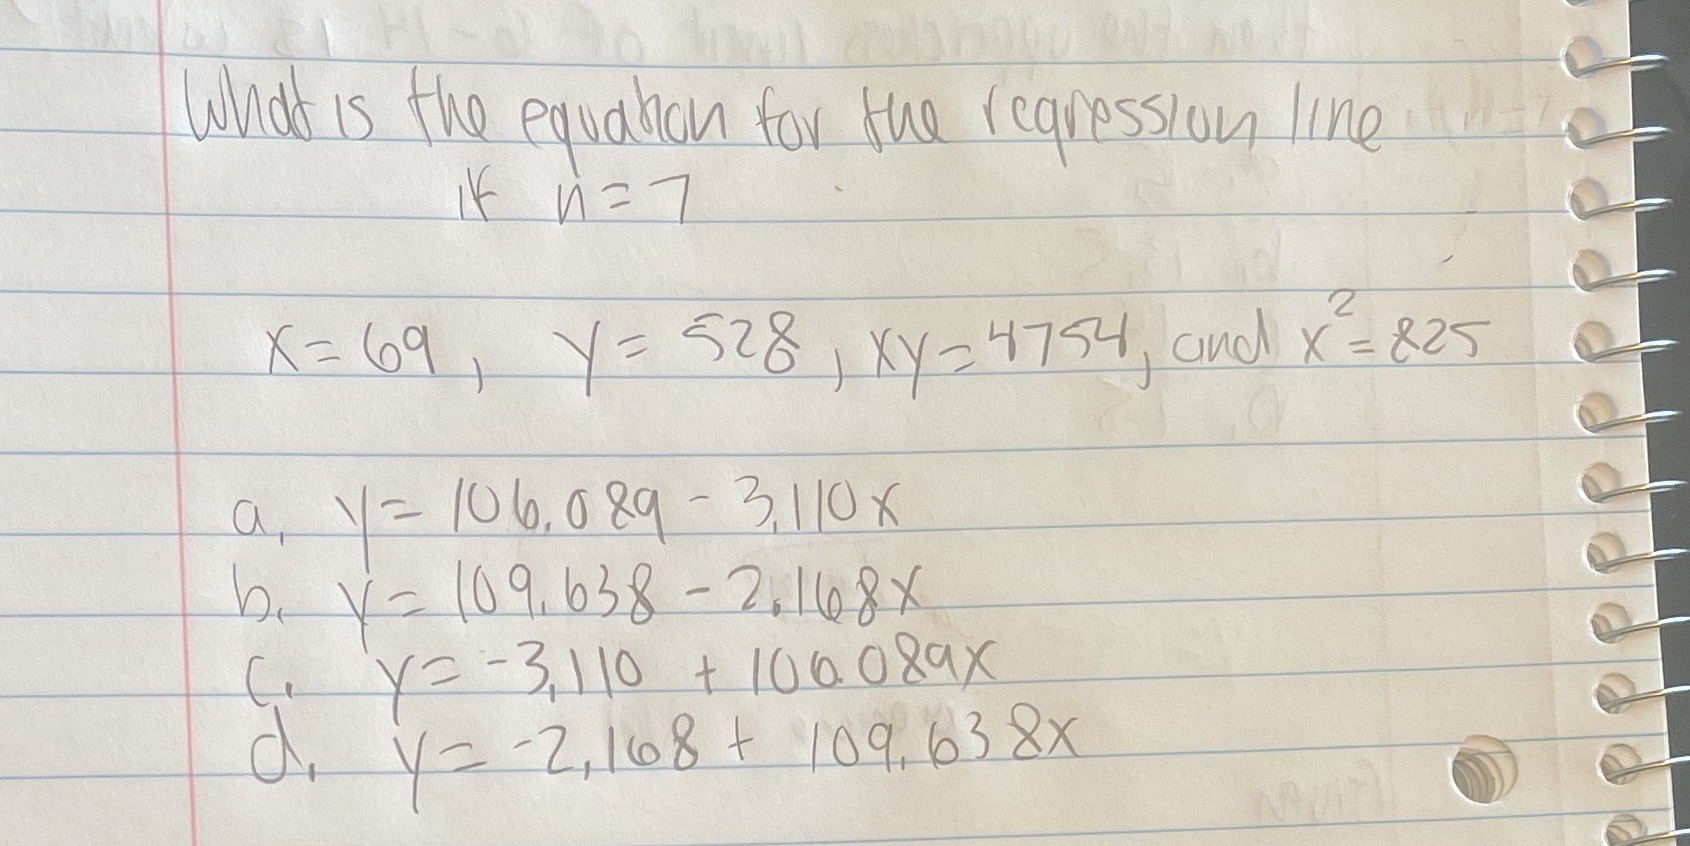 What is the equation for the regression line
if n = 7
x = 69, y = 528, xy = 4754, and x² = 825
a. y = 106.089 - 3.110x
b. y = 109.638 - 2.168x
c. y = -3.110 + 106.089x
d. y = -2.168 + 109.638x